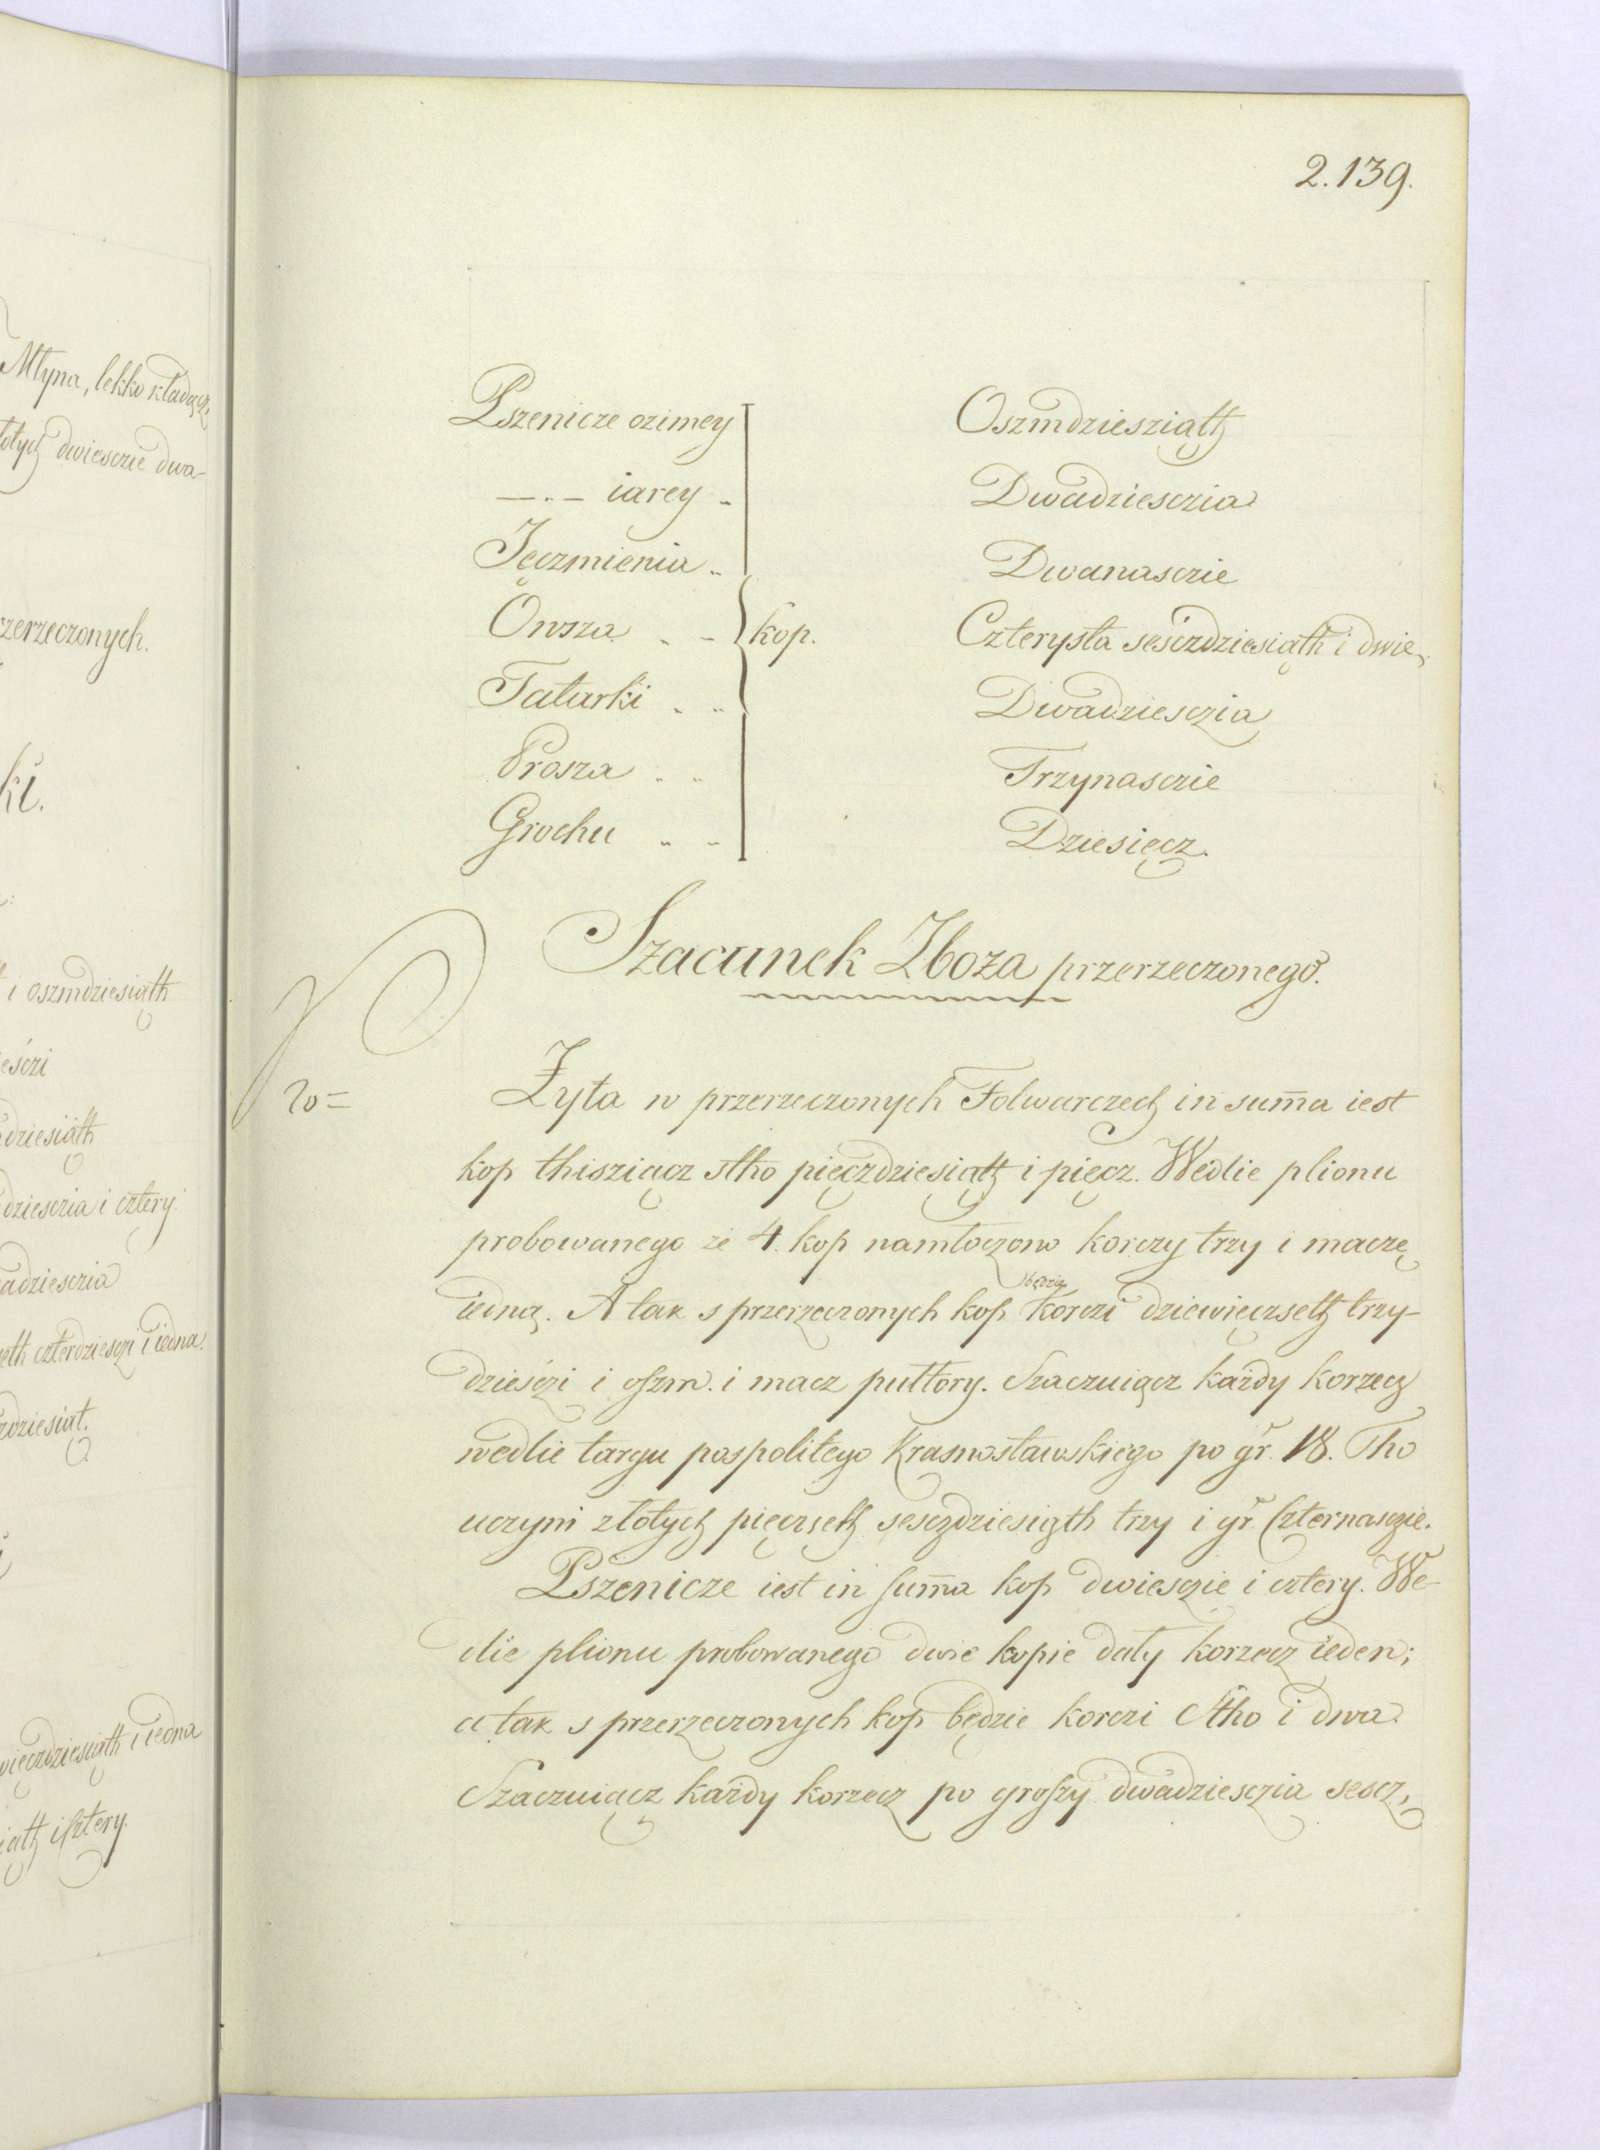 2.139.
Młyna, lekko kładącz,
dwiesczie dwa-
zerzeczonych.
ki.
i oszmdziesiąth
dziesiąth
dziesczia i cztery.
adziesczia
eth czterdziesczi i iedna.
zdziesiąt.
więczdziesiąth i iedna
iąth i Cztery.
Pszenicze ozimey Oszmdziesziąth
—.— iarey „ Dwadziesczia
Jęczmienia „ Dwanasczie
Owsza „ „ kop. Czterysta sesczdziesiąth i dwie,
Tatarki „ „ Dwadziesczia
Prosza „ „ Trzynasczie
Grochu „ „ Dziesięcz.
Szacunek Zboża przerzeczonego.
Żyta w przerzeczonych Folwarczech in sum̄a iest
kop thisziącz stho pięczdziesiąth i pięcz. Wedlie plionu
probowanego ze 4. kop namłoczono korczy trzy i maczę
będzie
iedną. A tak s przerzeczonych kop korczi dziewięczseth trzy-
dziesczi i oszm. i macz pułtory. Szaczuiącz każdy korzecz
wedlie targu pospolitego Krasnostawskiego po gr. 18. Tho
uczyni złotych pięczseth sesczdziesiąth trzy i gr Czternasczie.
Pszenicze iest in sum̄a kop dwiesczie i cztery. We-
dlie plionu probowanego dwie kopie dały korzecz ieden;
a tak s przerzeczonych kop będzie korczi Stho i dwa.
Szaczuiącz każdy korzecz po groszy dwadziesczia sescz,